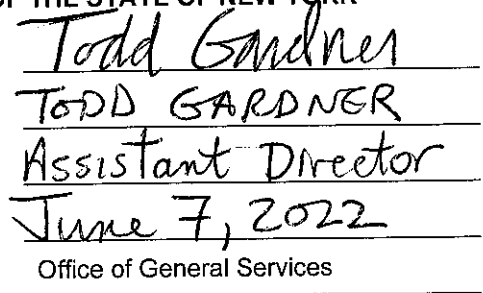 OF THE STATE OF NEW YORK
Todd Gardner
TODD GARDNER
Assistant Director
June 7, 2022
Office of General Services